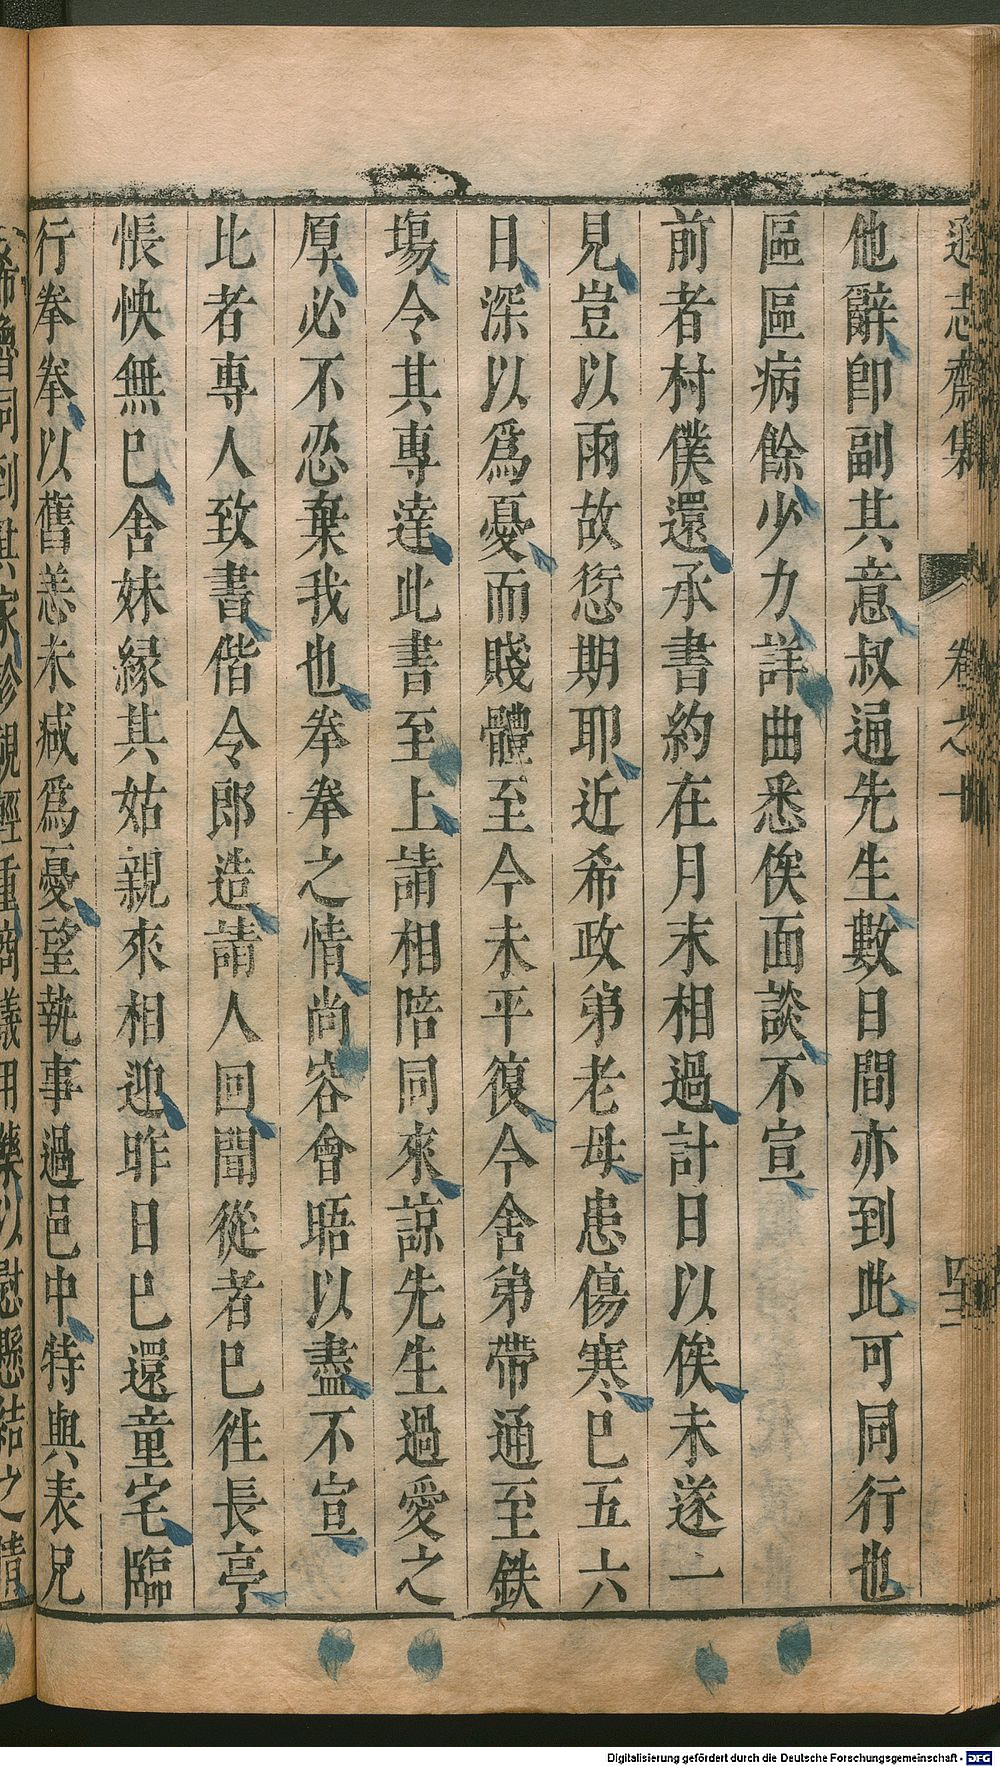 遜志齋集 卷之十 四十二
他辭卽副其意叔通先生數日間亦到此可同行也
區區病餘少力詳曲悉俟面談不宣
前者村僕還承書約在月末相過計日以俟未遂一
見豈以雨故愆期耶近希政弟老母患傷寒巳五六
日深以爲憂而賤體至今未平復今舍弟帶通至鉄
塲令其專達此書至上請相陪同來諒先生過愛之
厚必不忍棄我也拳拳之情尚容會晤以盡不宣
比者專人致書偕令郎造請人回聞從者巳徃長亭
悵怏無巳舍妹縁其姑親來相迎昨日巳還童宅臨
行拳拳以舊恙未减爲憂望執事過邑中特與表兄
Digitalisierung gefördert durch die Deutsche Forschungsgemeinschaft - DFG